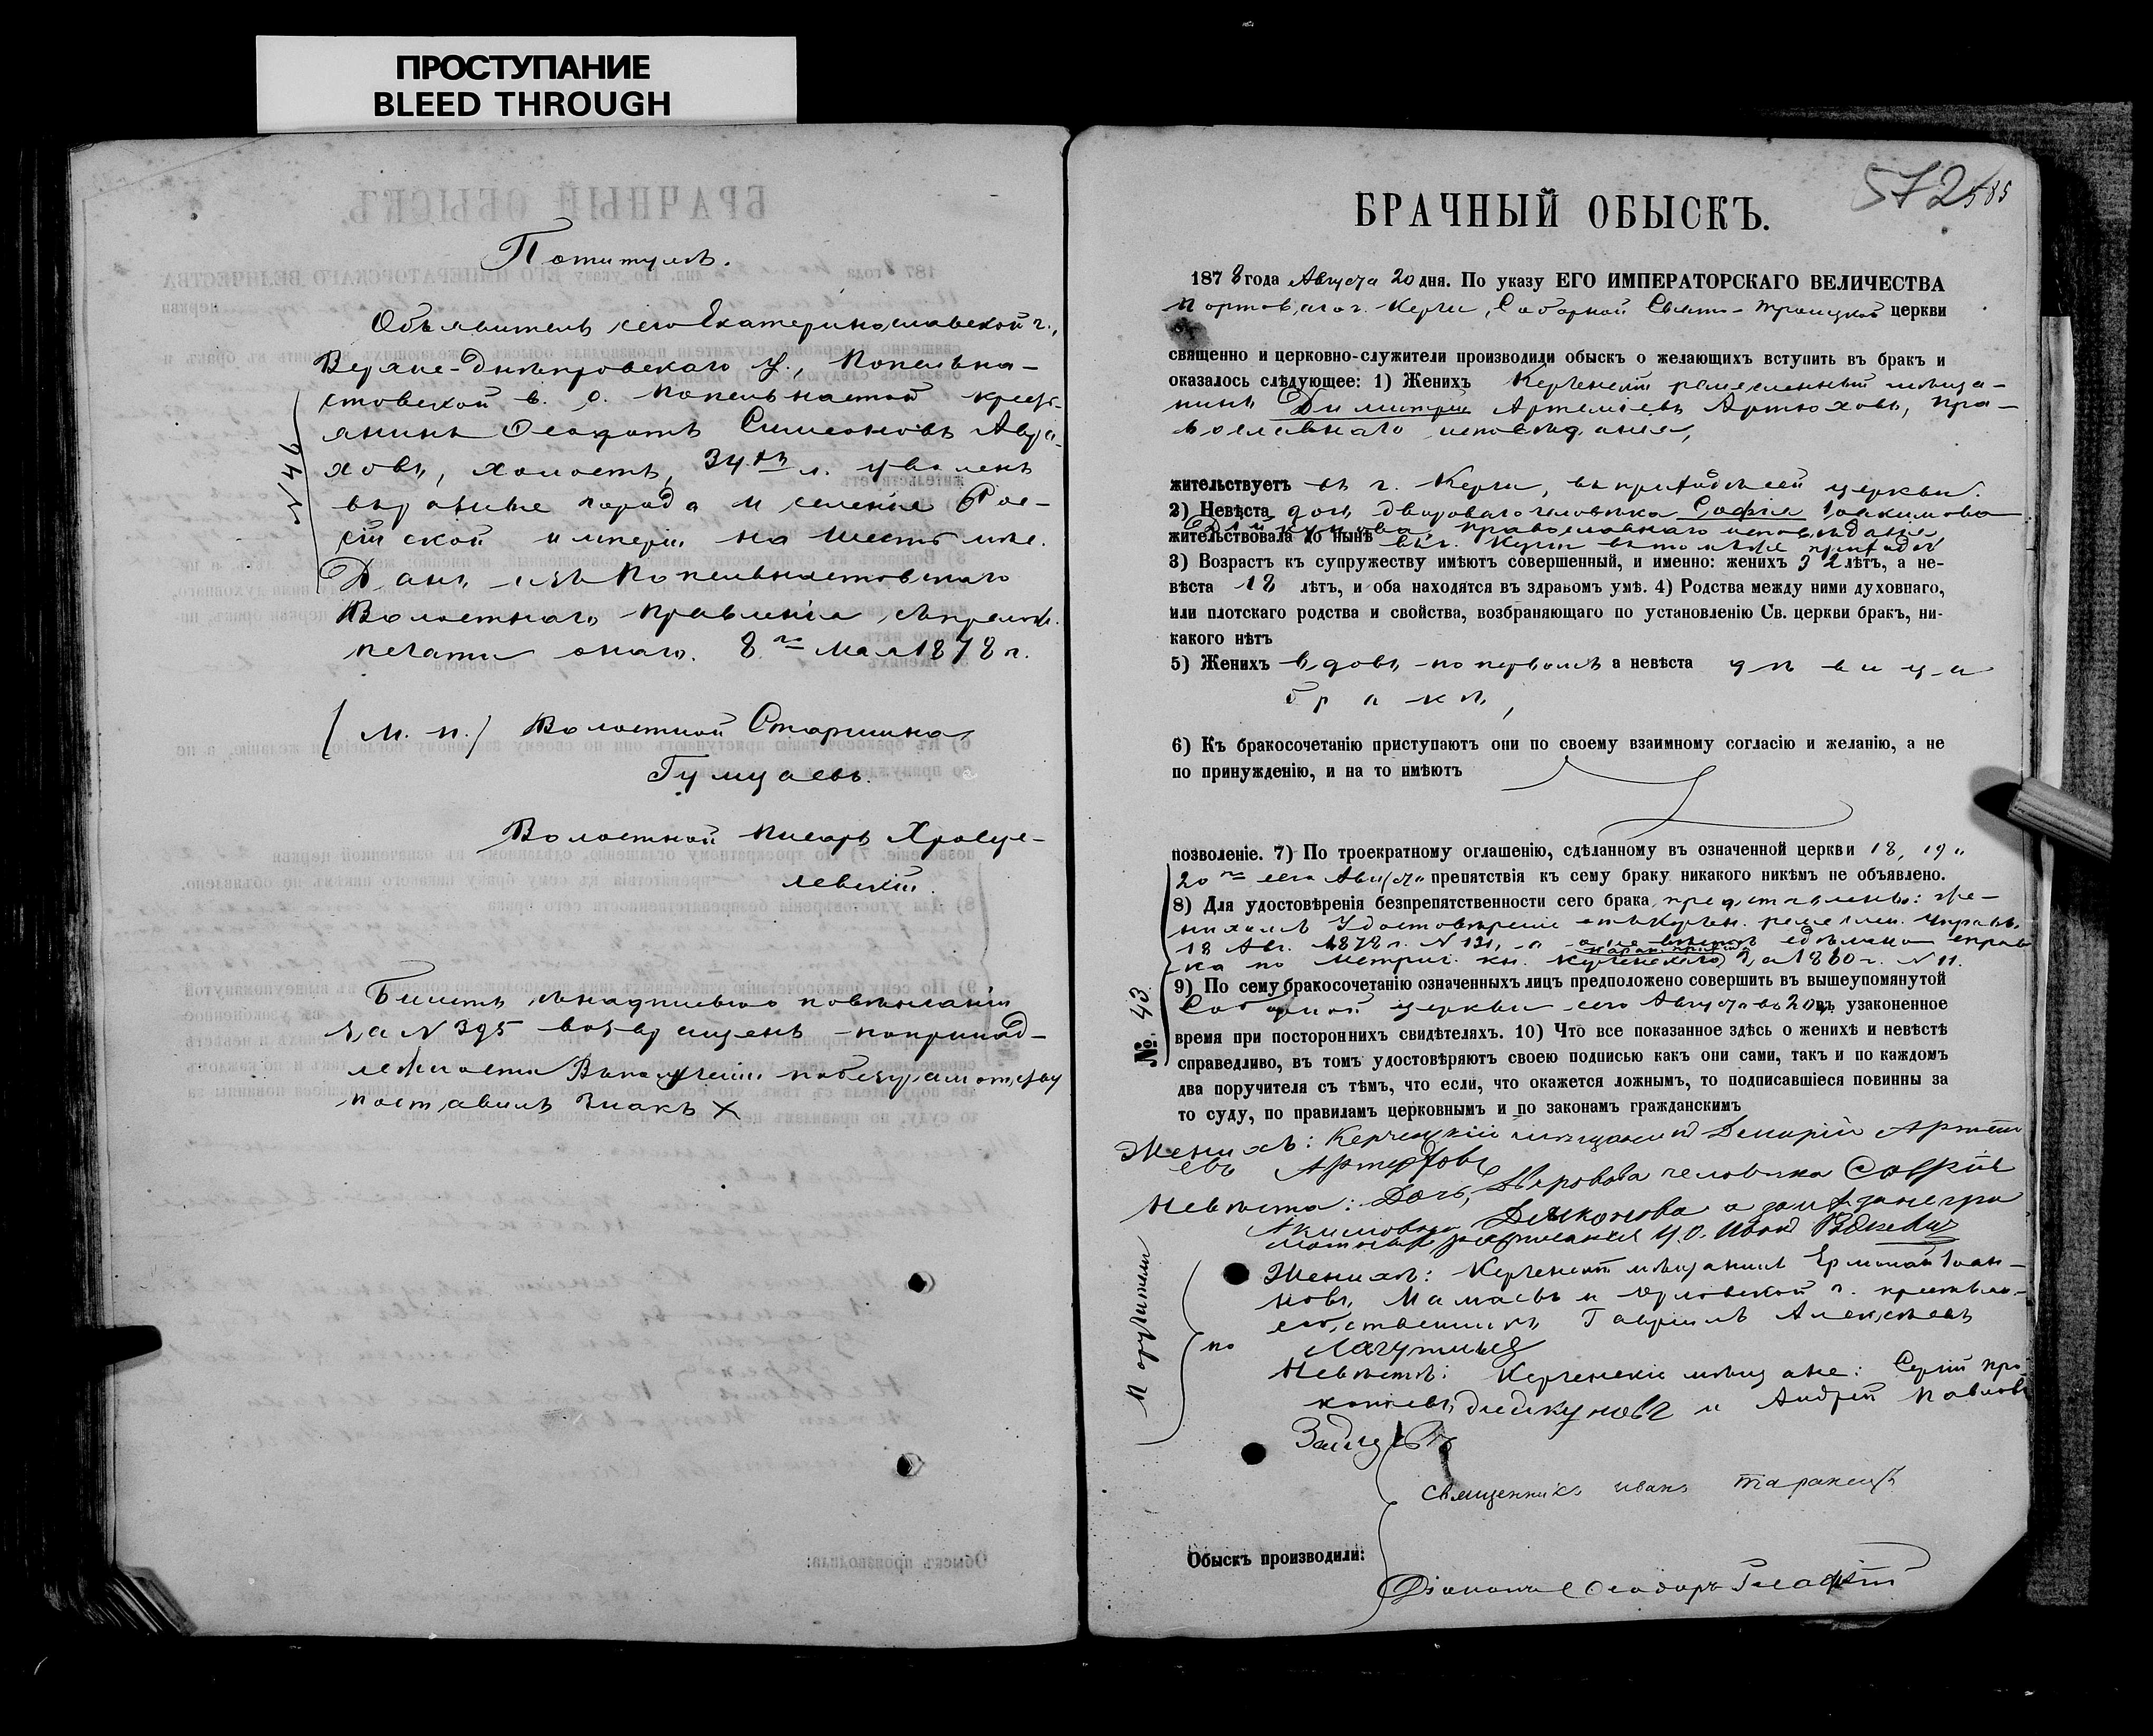 ПРОСТУПАНИЕ
BLEED THROUGH
По титулѣ.
Объявитель сего Екатеринославской г.,
Верхне-днѣпровскаго у., Попельна-
стовской в. с. Попельнастой кресть-
янинъ Ѳеодотъ Симеоновъ
ховъ, холостъ, 34хъ л. уволенъ
въ разные города и селенія Рос-
сійской имперіи на шесть мѣс.
Данъ изъ Попельнастовскаго
Волостнаго Правленія съ прилож.
печати онаго. 8го Мая 1878 г.
(М. п.) Волостной Старшина
Волостной писарь
левскій.
№ 46
Билетъ съ надписью о повѣнчаніи
за № 395 возвращенъ по принад-
лежности
поставилъ знакъ X
572
585
БРАЧНЫЙ ОБЫСКЪ.
1878 года Августа 20 дня. По указу ЕГО ИМПЕРАТОРСКАГО ВЕЛИЧЕСТВА
Портоваго г. Керчи, Соборной Свято-Троицкой церкви
священно и церковно-служители производили обыскъ о желающихъ вступить въ бракъ и
оказалось слѣдующее: 1) Женихъ Керченскій ремесленный мѣща-
нинъ Димитрій Артеміевъ Артюховъ, пра-
вославнаго исповѣданія,
жительствуетъ въ г. Керчи, въ приходѣ сей церкви.
2) Невѣста дочь двороваго человѣка Софія Іоакимова
православнаго исповѣданія,
жительствовала до нынѣ въ г. Керчи въ томъ же приходѣ
3) Возрастъ къ супружеству имѣютъ совершенный, и именно: женихъ 32 лѣтъ, а не-
вѣста 18 лѣтъ, и оба находятся въ здравомъ умѣ. 4) Родства между ними духовнаго,
или плотскаго родства и свойства, возбраняющаго по установленію Св. церкви бракъ, ни-
какого нѣтъ
5) Женихъ вдовъ по первомъ а невѣста дѣвица
бракѣ,
6) Къ бракосочетанію приступаютъ они по своему взаимному согласію и желанію, а не
по принужденію, и на то имѣютъ
позволеніе. 7) По троекратному оглашенію, сдѣланному въ означенной церкви 18, 19 и
20го сего Августа препятствія къ сему браку никакого никѣмъ не объявлено.
8) Для удостовѣренія безпрепятственности сего брака представлены: же-
нихомъ Удостовѣреніе отъ Керчен. ремеслен. Управы
18 Авг. 1878 г. № 131, а о невѣстѣ сдѣлана справ
ка по Метрич. кн. за 1860 г. № 11.
9) По сему бракосочетанію означенныхъ лицъ предположено совершить въ вышеупомянутой
Соборной церкви сего Августа въ 20 въ узаконенное
время при постороннихъ свидѣтеляхъ. 10) Что все показанное здѣсь о женихѣ и невѣстѣ
справедливо, въ томъ удостовѣряютъ своею подписью какъ они сами, такъ и по каждомъ
два поручителя съ тѣмъ, что если, что окажется ложнымъ, то подписавшіеся повинны за
то суду, по правиламъ церковнымъ и по законамъ гражданскимъ
№. 43
Женихъ:
Невѣста: Дочь, человѣка
Поручители
по
Женихѣ: Керченскій мѣщанинъ Ермолай Іоан-
новъ Мамаевъ и Орловской г. крестьян-
Гавріилъ Алексѣевъ
Лагутинъ
Невѣстѣ: Керченскіе мѣщане: Сергій Про-
и Андрей Павловъ
Зайцевъ
священникъ иванъ таранецъ
Обыскъ производили:
Діаконъ Ѳеодоръ